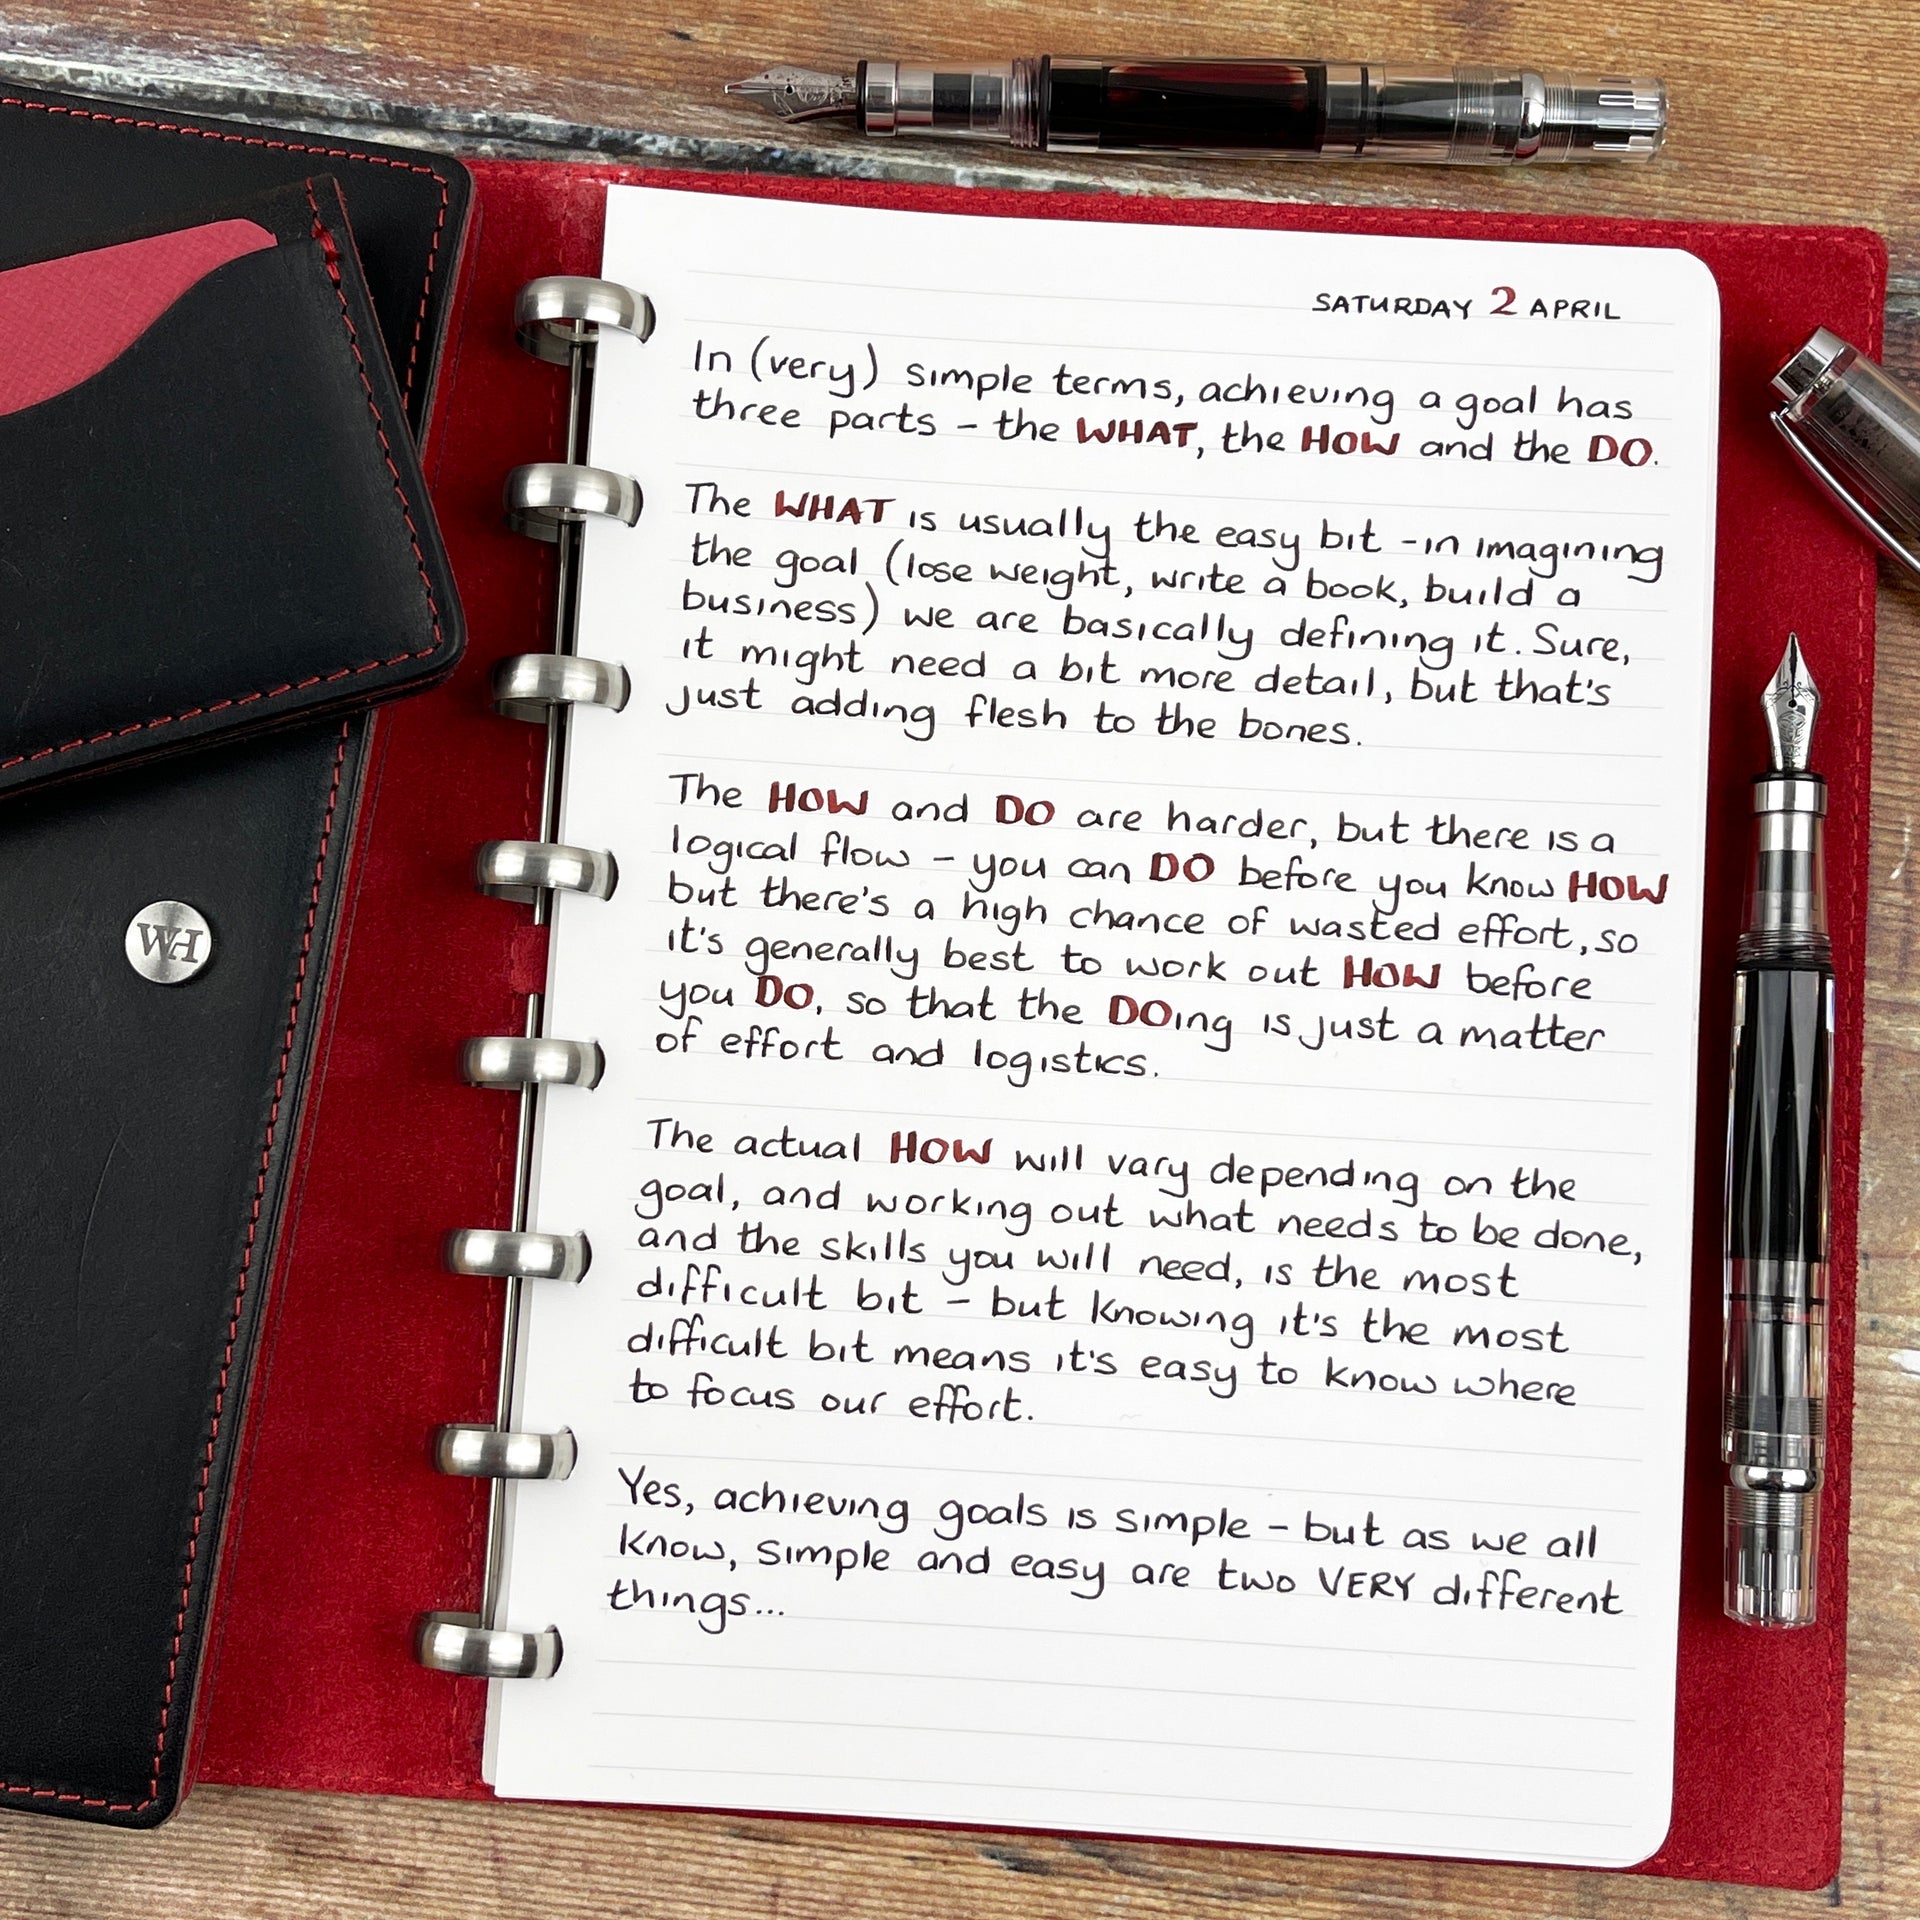 SATURDAY 2 APRIL
In (very) simple terms, achieving a goal has
three parts - the WHAT, the HOW and the DO.
The WHAT is usually the easy bit - in imagining
the goal (lose weight, write a book, build a
business) we are basically defining it. Sure,
it might need a bit more detail, but that's
just adding flesh to the bones.
The HOW and DO are harder, but there is a
logical flow - you can DO before you know HOW
but there's a high chance of wasted effort, so
it's generally best to work out HOW before
you DO, so that the DOing is just a matter
of effort and logistics.
The actual HOW will vary depending on the
goal, and working out what needs to be done,
and the skills you will need, is the most
difficult bit - but knowing it's the most
difficult bit means it's easy to know where
to focus our effort.
Yes, achieving goals is simple - but as we all
know, simple and easy are two VERY different
things...
WH